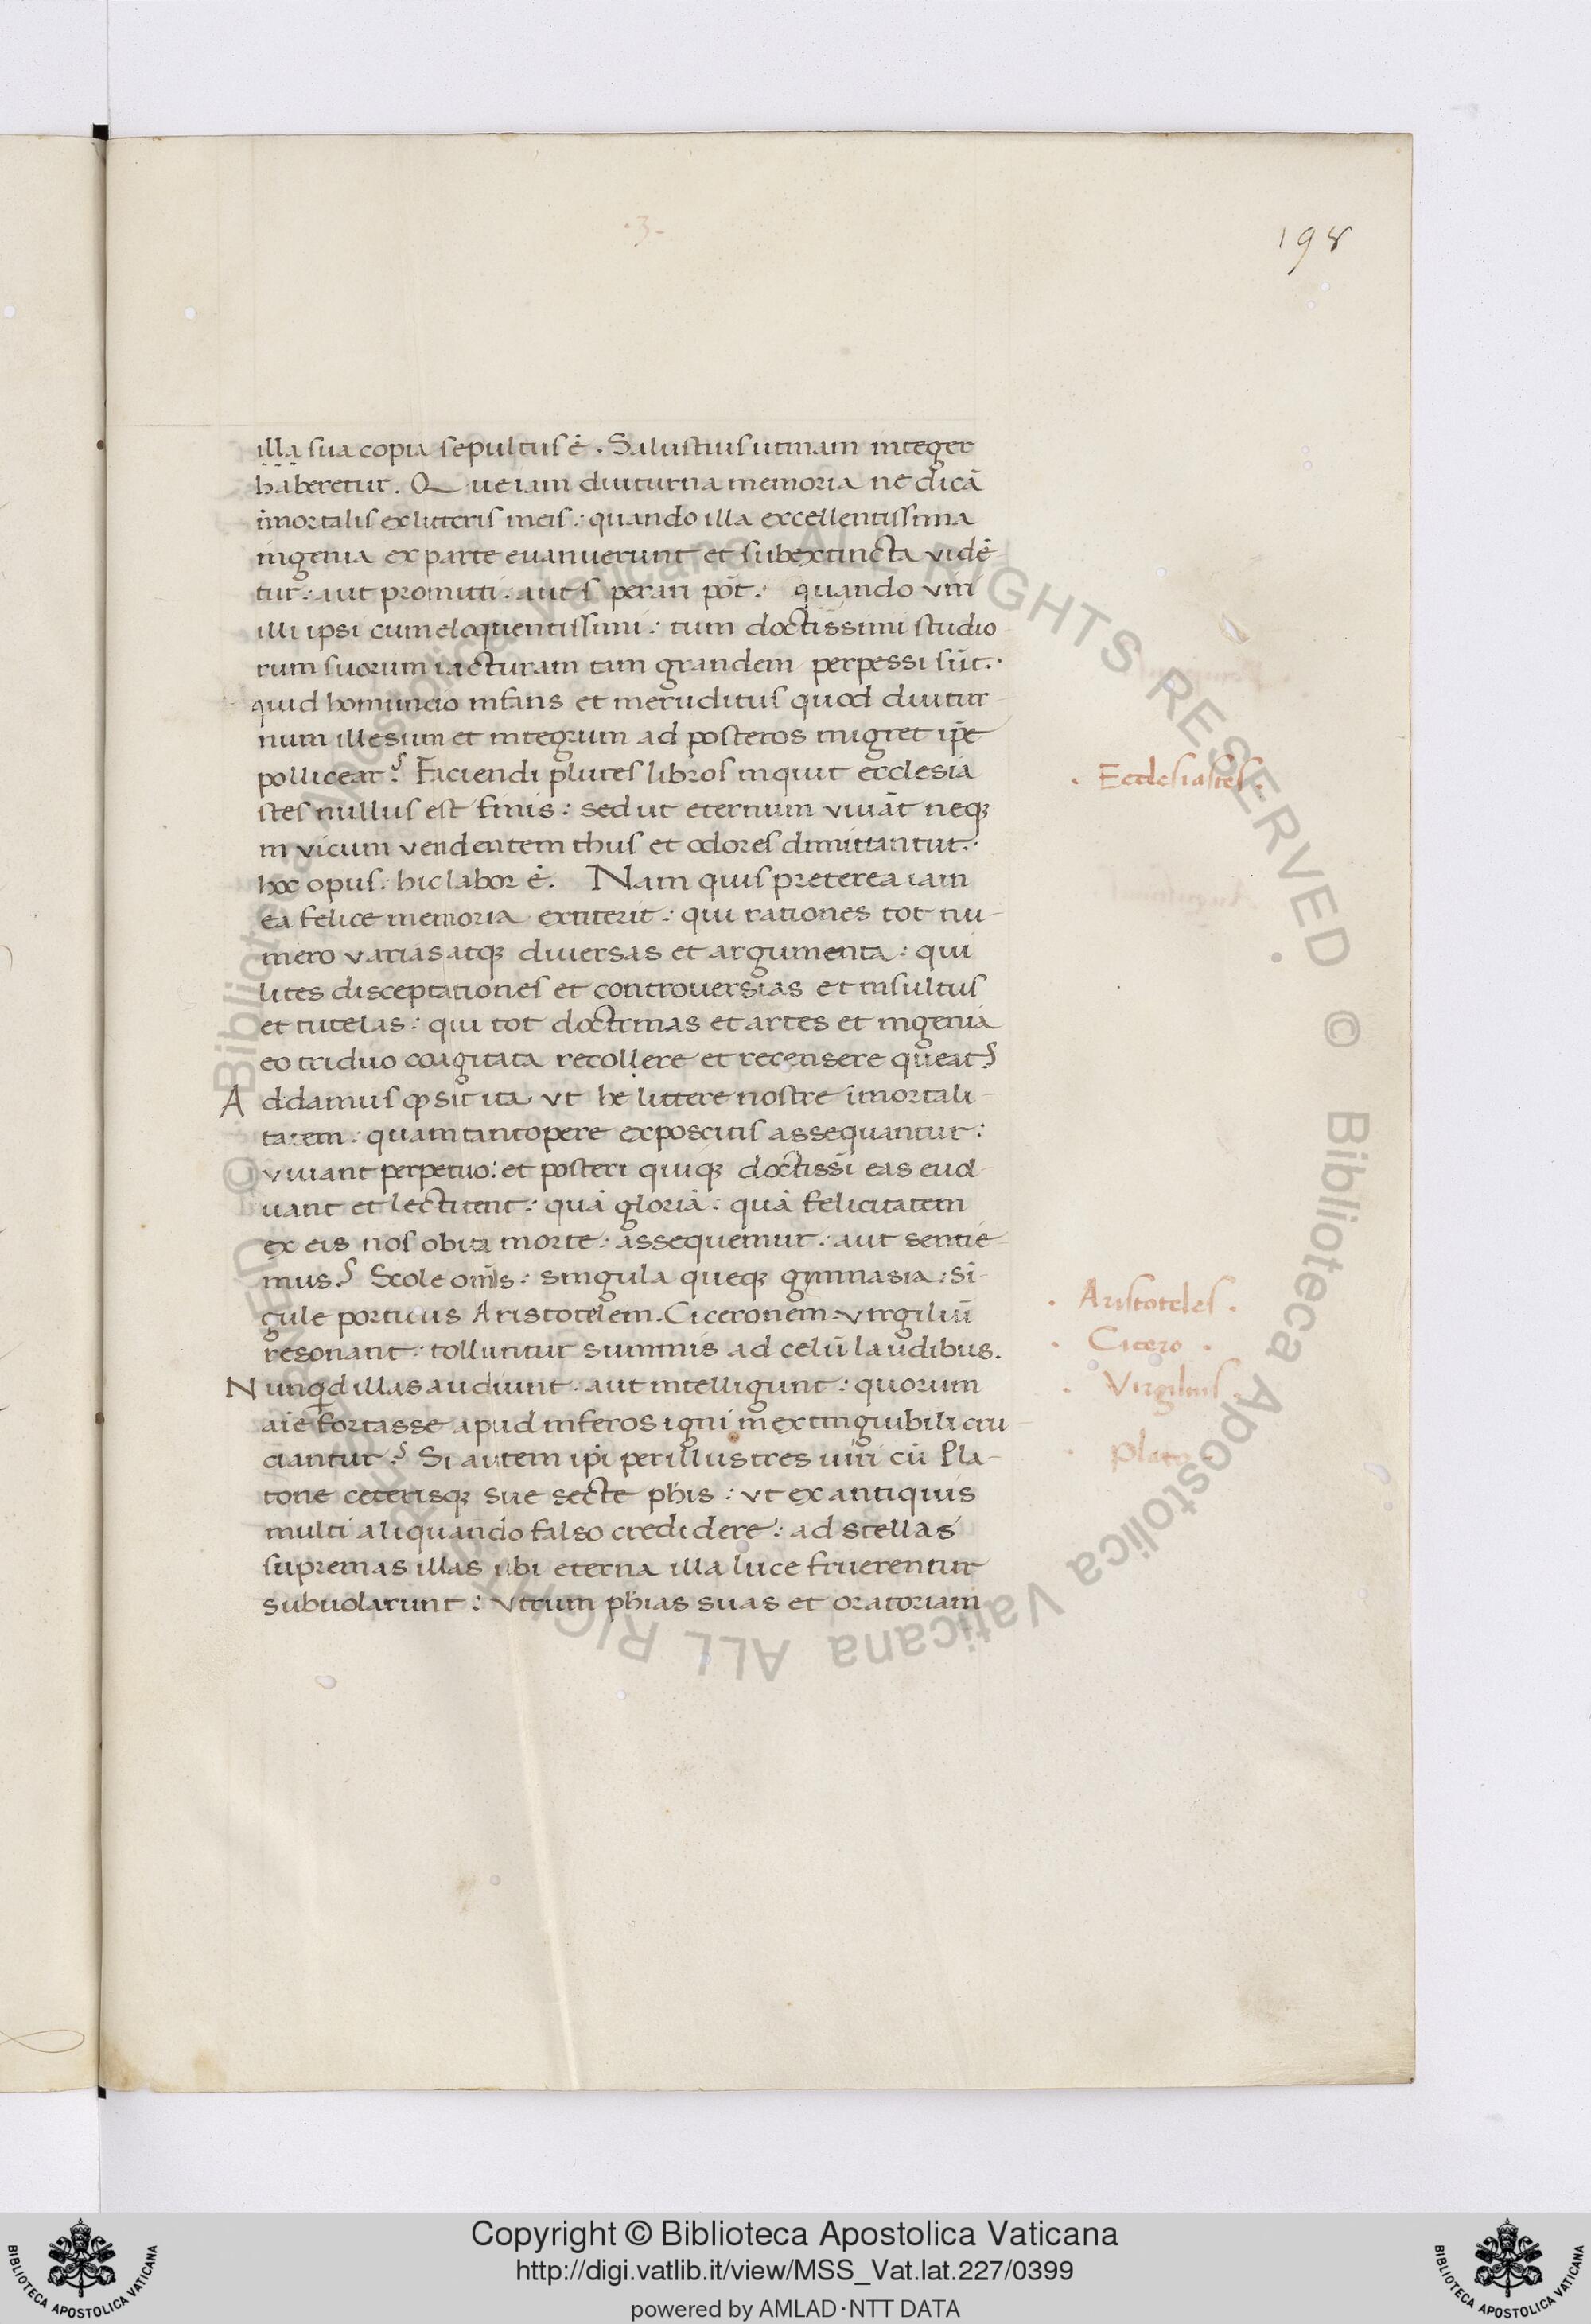 ·3·
198
illa sua copia sepultus ē. Salustius utinam integer
haberetur. Que iam diuturna memoria ne dicā
īmortalis ex litteris meis: quando illa excellentissima
ingenia ex parte euanuerunt et subextincta vidē
tur: aut promitti: aut sperari pōt: quando viri
illi ipsi cum eloquentissimi: tum doctissimi studio
rum suorum iacturam tam grandem perpessi sūt:
quid homuncio infans et ineruditus quod diutur-
num illesum et integrum ad posteros migret ip̄e
pollicear? Faciendi plures libros inquit ecclesia
stes nullus est finis: sed ut eternum viuāt neqꝫ
in vicum vendentem thus et odores dimittantur:
hoc opus: hic labor ē. Nam quis preterea iam
ea felice memoria extiterit: qui rationes tot nu-
mero varias atqꝫ diuersas et argumenta: qui
lites disceptationes et controuersias et insultus
et tutelas: qui tot doctrinas et artes et ingenia
eo triduo coagitata recollere et recensere queat?
Addamus ꝙ sit ita vt he littere nostre īmortali-
tatem: quam tantopere exposcitis assequantur:
viuant perpetuo: et posteri quiqꝫ doctissi eas euol-
uant et lectitent: quā gloriā: quā felicitatem
ex eis nos obita morte: assequemur: aut sentie-
mus? Scole om̄s: singula queqꝫ gymnasia: si-
gule porticus Aristotelem. Ciceronem. Virgiliū
resonant: tolluntur summis ad celū laudibus.
Nunqd illas audiunt: aut intelligunt: quorum
aīe fortasse apud inferos igni inextinguibili cru-
ciantur? Si autem ip̄i perillustres uiri cū Pla-
tone ceterisqꝫ sue secte ph̄is: vt ex antiquis
multi aliquando falso credidere: ad stellas
supremas illas ubi eterna illa luce fruerentur
subuolarunt: vtrum ph̄ias suas et oratoriam
· Ecclesiastes ·
· Aristoteles ·
· Cicero ·
· Virgilius ·
· Plato ·
© Biblioteca Apostolica Vaticana ALL RIGHTS RESERVED © Biblioteca Apostolica Vaticana ALL RIGHTS RESERVED
Copyright © Biblioteca Apostolica Vaticana
http://digi.vatlib.it/view/MSS_Vat.lat.227/0399
powered by AMLAD·NTT DATA
BIBLIOTECA APOSTOLICA VATICANA
BIBLIOTECA APOSTOLICA VATICANA